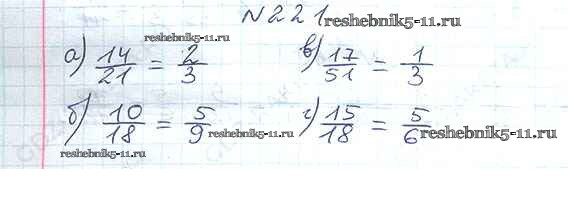 N221 reshebnik5-11.ru
reshebnik5-11.ru
а) 14/21 = 2/3 в) 17/51 = 1/3
б) 10/18 = 5/9 reshebnik5-11.ru г) 15/18 = 5/6 reshebnik5-11.ru
reshebnik5-11.ru